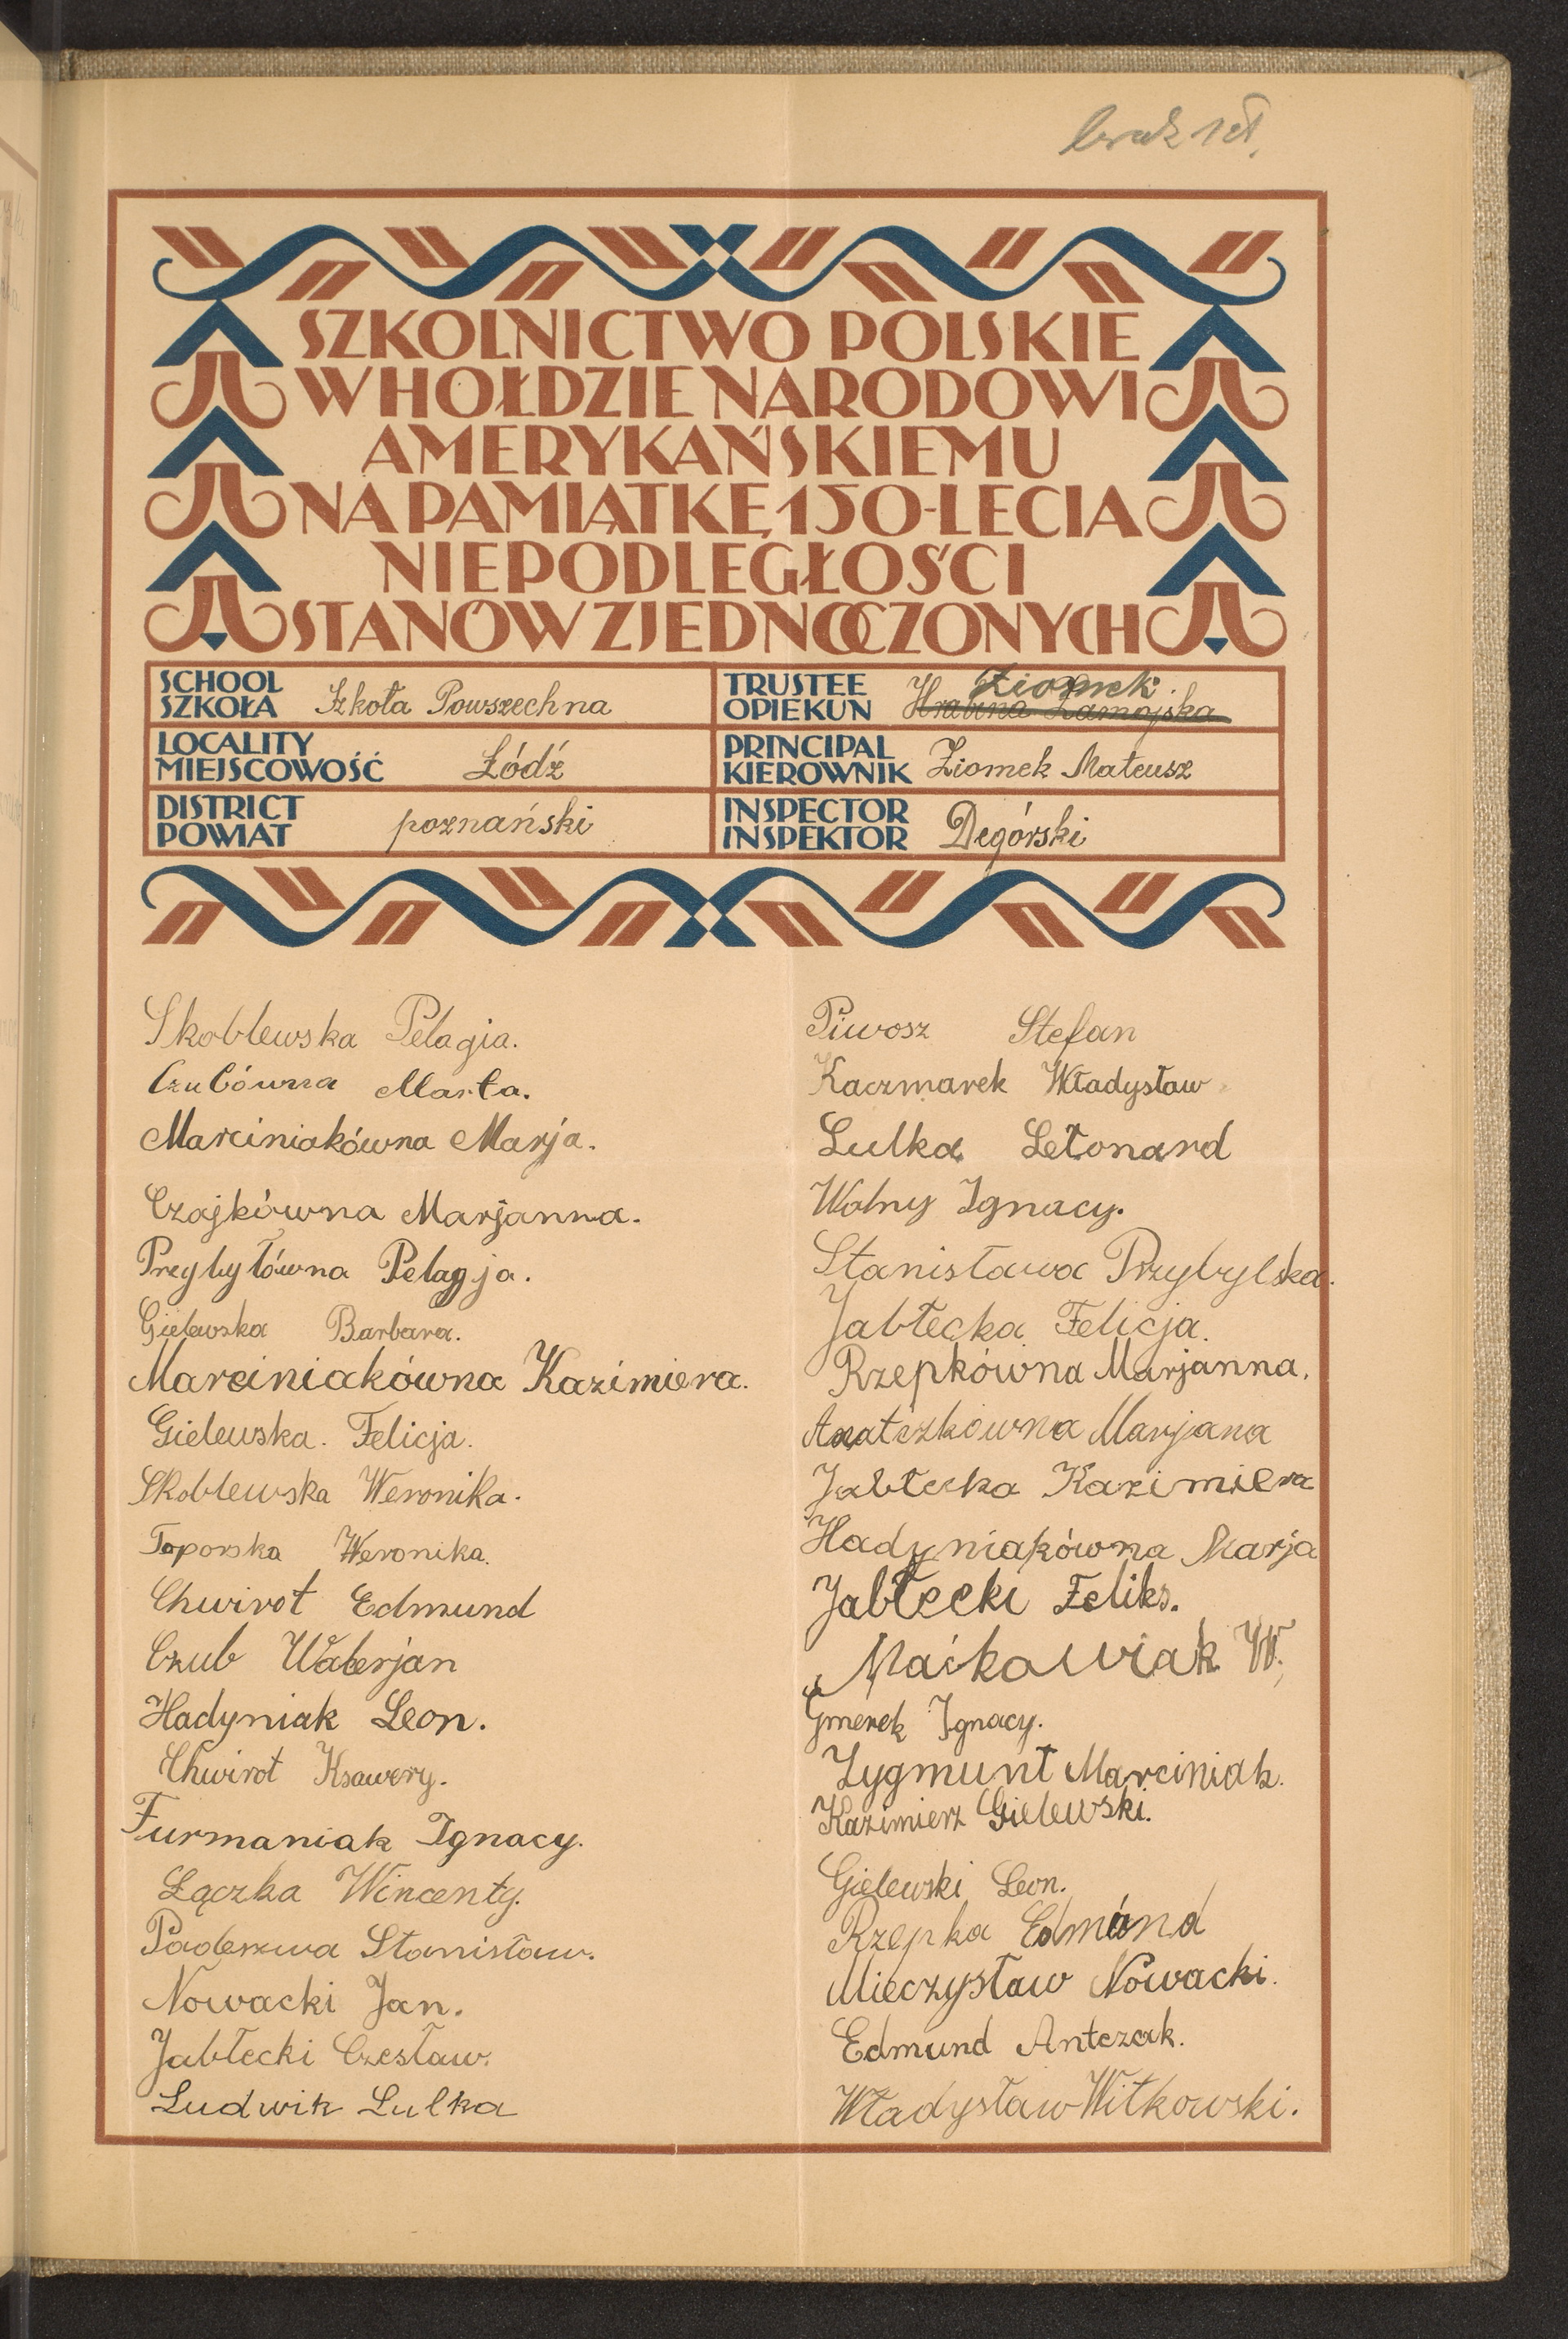 brak 1 zł.
SZKOLNICTWO POLSKIE
W HOŁDZIE NARODOWI
AMERYKAŃSKIEMU
NA PAMIĄTKĘ 150-LECIA
NIEPODLEGŁOŚCI
STANÓW ZJEDNOCZONYCH
SCHOOL
SZKOŁA Szkoła Powszechna
TRUSTEE
OPIEKUN Ziomek Hrabina Zamojska
LOCALITY
MIEJSCOWOŚĆ Łódź
PRINCIPAL
KIEROWNIK Ziomek Mateusz
DISTRICT
POWIAT poznański
INSPECTOR
INSPEKTOR Degórski
Skoblewska Pelagia.
Czubówna Marta.
Marciniakówna Marja.
Czajkówna Marjanna.
Przybyłówna Pelagja.
Gielewska Barbara.
Marciniakówna Kazimiera.
Gielewska. Felicja.
Skoblewska Weronika.
Toporska Weronika.
Chwirot Edmund
Czub Walerjan
Hadyniak Leon.
Chwirot Ksawery.
Furmaniak Ignacy.
Łączka Wincenty.
Stanisław.
Nowacki Jan.
Jabłecki Czesław.
Ludwik Lulka
Piwosz Stefan
Kaczmarek Władysław
Lulka Letonard
Wolny Ignacy.
Stanisława Przybylska.
Jabłecka Felicja.
Rzepkówna Marjanna.
Marjana
Jabłecka Kazimiera
Hadyniakówna Marja
Jabłecki Feliks.
Maćkowiak W.
Gmerek Ignacy.
Zygmunt Marciniak.
Kazimierz Gielewski.
Gielewski Leon.
Rzepka Edmund
Mieczysław Nowacki.
Edmund Antczak.
Władysław Witkowski.